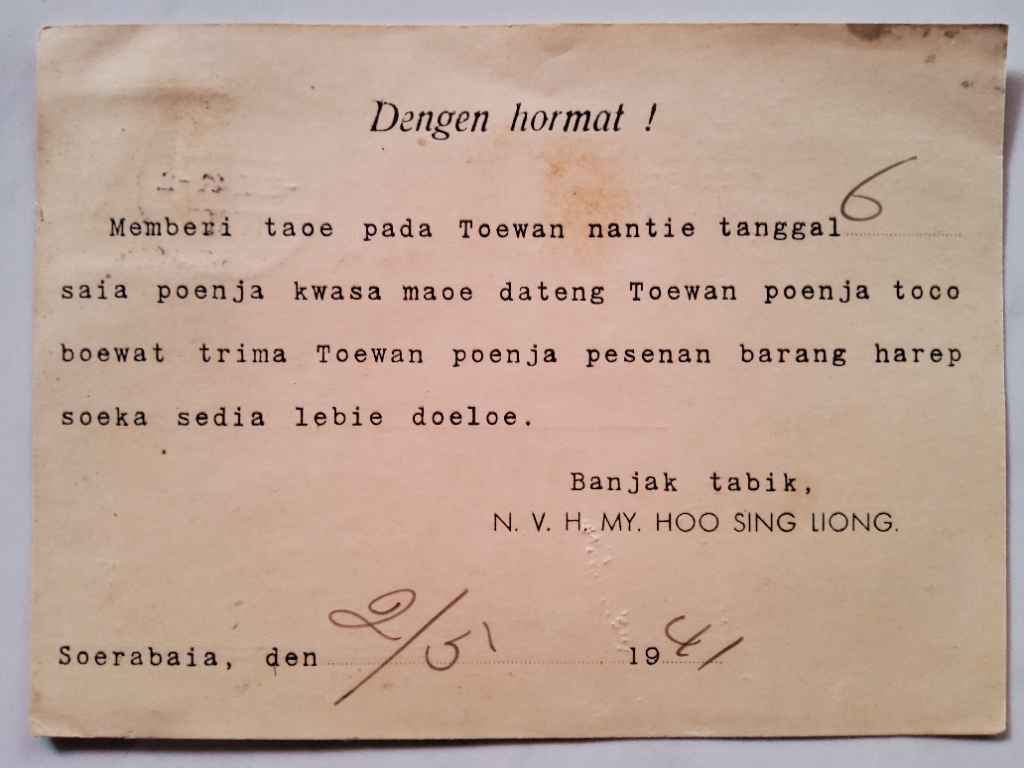 Dengen hormat !
Memberi taoe pada Toewan nantie tanggal 6
saia poenja kwasa maoe dateng Toewan poenja toco
boewat trima Toewan poenja pesenan barang harep
soeka sedia lebie doeloe.
Banjak tabik,
N. V. H. MY. HOO SING LIONG.
Soerabaia, den 2/5 1941